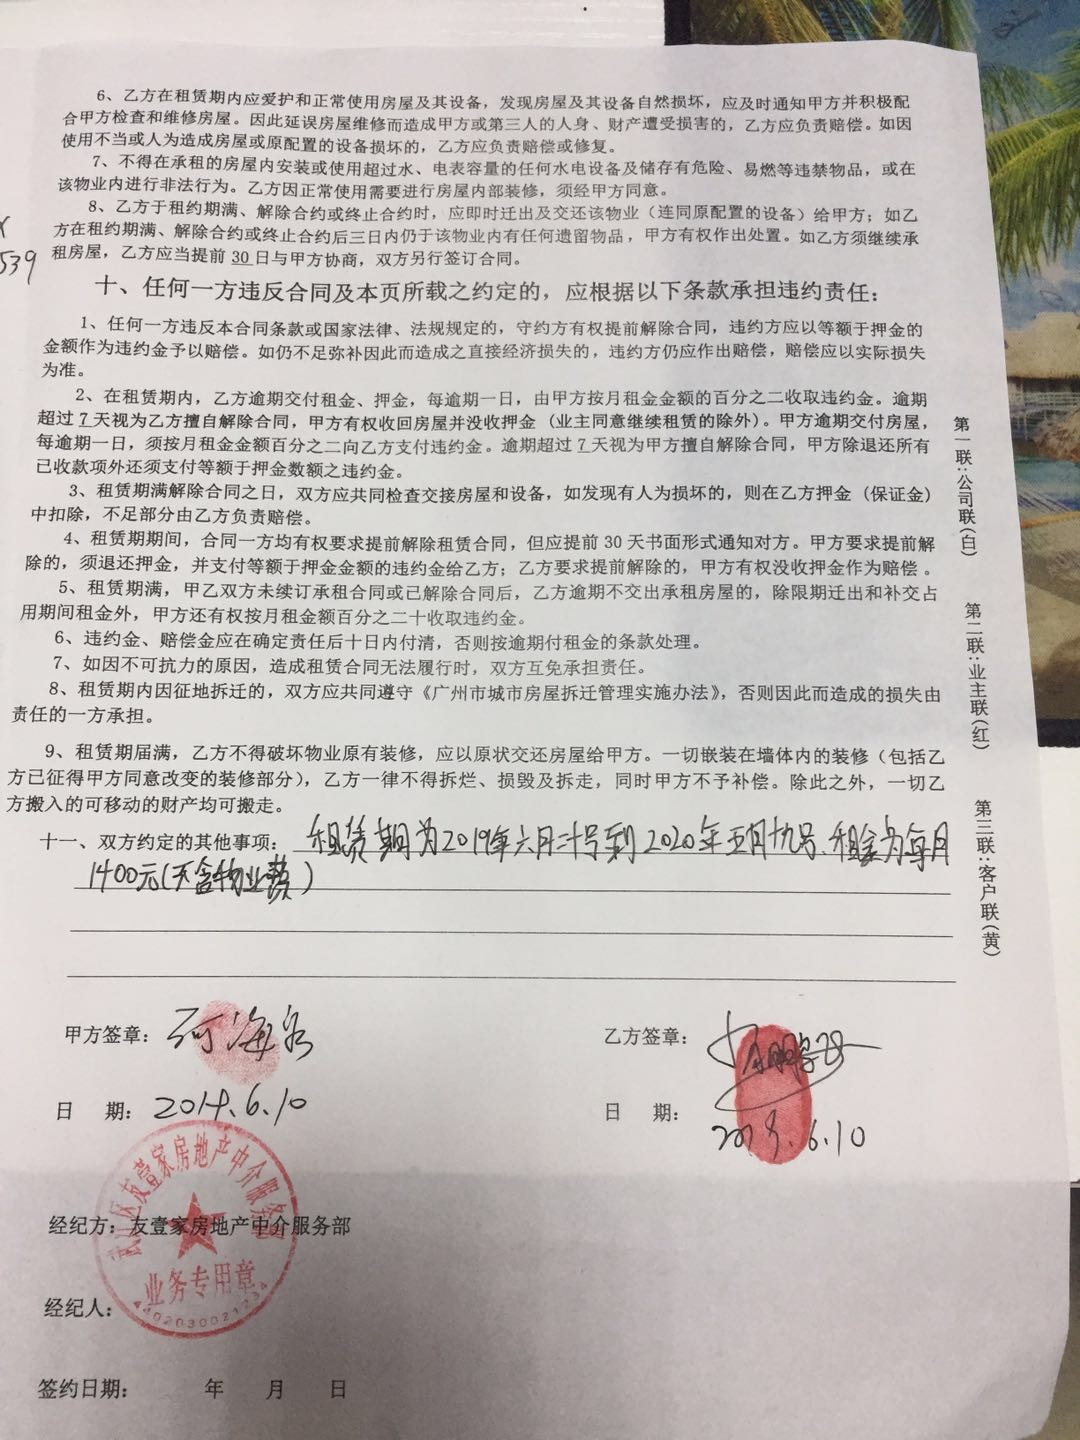 539
6、乙方在租赁期内应爱护和正常使用房屋及其设备，发现房屋及其设备自然损坏，应及时通知甲方并积极配
合甲方检查和维修房屋。因此延误房屋维修而造成甲方或第三人的人身、财产遭受损害的，乙方应负责赔偿。如因
使用不当或人为造成房屋或原配置的设备损坏的，乙方应负责赔偿或修复。
7、不得在承租的房屋内安装或使用超过水、电表容量的任何水电设备及储存有危险、易燃等违禁物品，或在
该物业内进行非法行为。乙方因正常使用需要进行房屋内部装修，须经甲方同意。
8、乙方于租约期满、解除合约或终止合约时，应即时迁出及交还该物业（连同原配置的设备）给甲方；如乙
方在租约期满、解除合约或终止合约后三日内仍于该物业内有任何遗留物品，甲方有权作出处置。如乙方须继续承
租房屋，乙方应当提前 30 日与甲方协商，双方另行签订合同。
十、任何一方违反合同及本页所载之约定的，应根据以下条款承担违约责任：
1、任何一方违反本合同条款或国家法律、法规规定的，守约方有权提前解除合同，违约方应以等额于押金的
金额作为违约金予以赔偿。如仍不足弥补因此而造成之直接经济损失的，违约方仍应作出赔偿，赔偿应以实际损失
为准。
2、在租赁期内，乙方逾期交付租金、押金，每逾期一日，由甲方按月租金金额的百分之二收取违约金。逾期
超过 7 天视为乙方擅自解除合同，甲方有权收回房屋并没收押金（业主同意继续租赁的除外）。甲方逾期交付房屋，
每逾期一日，须按月租金金额百分之二向乙方支付违约金。逾期超过 7 天视为甲方擅自解除合同，甲方除退还所有
已收款项外还须支付等额于押金数额之违约金。
3、租赁期满解除合同之日，双方应共同检查交接房屋和设备，如发现有人为损坏的，则在乙方押金（保证金）
中扣除，不足部分由乙方负责赔偿。
4、租赁期期间，合同一方均有权要求提前解除租赁合同，但应提前 30 天书面形式通知对方。甲方要求提前解
除的，须退还押金，并支付等额于押金金额的违约金给乙方；乙方要求提前解除的，甲方有权没收押金作为赔偿。
5、租赁期满，甲乙双方未续订承租合同或已解除合同后，乙方逾期不交出承租房屋的，除限期迁出和补交占
用期间租金外，甲方还有权按月租金额百分之二十收取违约金。
6、违约金、赔偿金应在确定责任后十日内付清，否则按逾期付租金的条款处理。
7、如因不可抗力的原因，造成租赁合同无法履行时，双方互免承担责任。
8、租赁期内因征地拆迁的，双方应共同遵守《广州市城市房屋拆迁管理实施办法》，否则因此而造成的损失由
责任的一方承担。
9、租赁期届满，乙方不得破坏物业原有装修，应以原状交还房屋给甲方。一切嵌装在墙体内的装修（包括乙
方已征得甲方同意改变的装修部分），乙方一律不得拆烂、损毁及拆走，同时甲方不予补偿。除此之外，一切乙
方搬入的可移动的财产均可搬走。
十一、双方约定的其他事项：租赁期为2019年六月二十号到2020年五月十九号、租金为每月
1400元(不含物业费)
第一联：公司联（白）
第二联：业主联（红）
第三联：客户联（黄）
甲方签章：
乙方签章：
日 期：2019.6.10
日 期：2019.6.10
友壹家房地产中介服务部
业务专用章
经纪方：友壹家房地产中介服务部
经纪人：
签约日期： 年 月 日